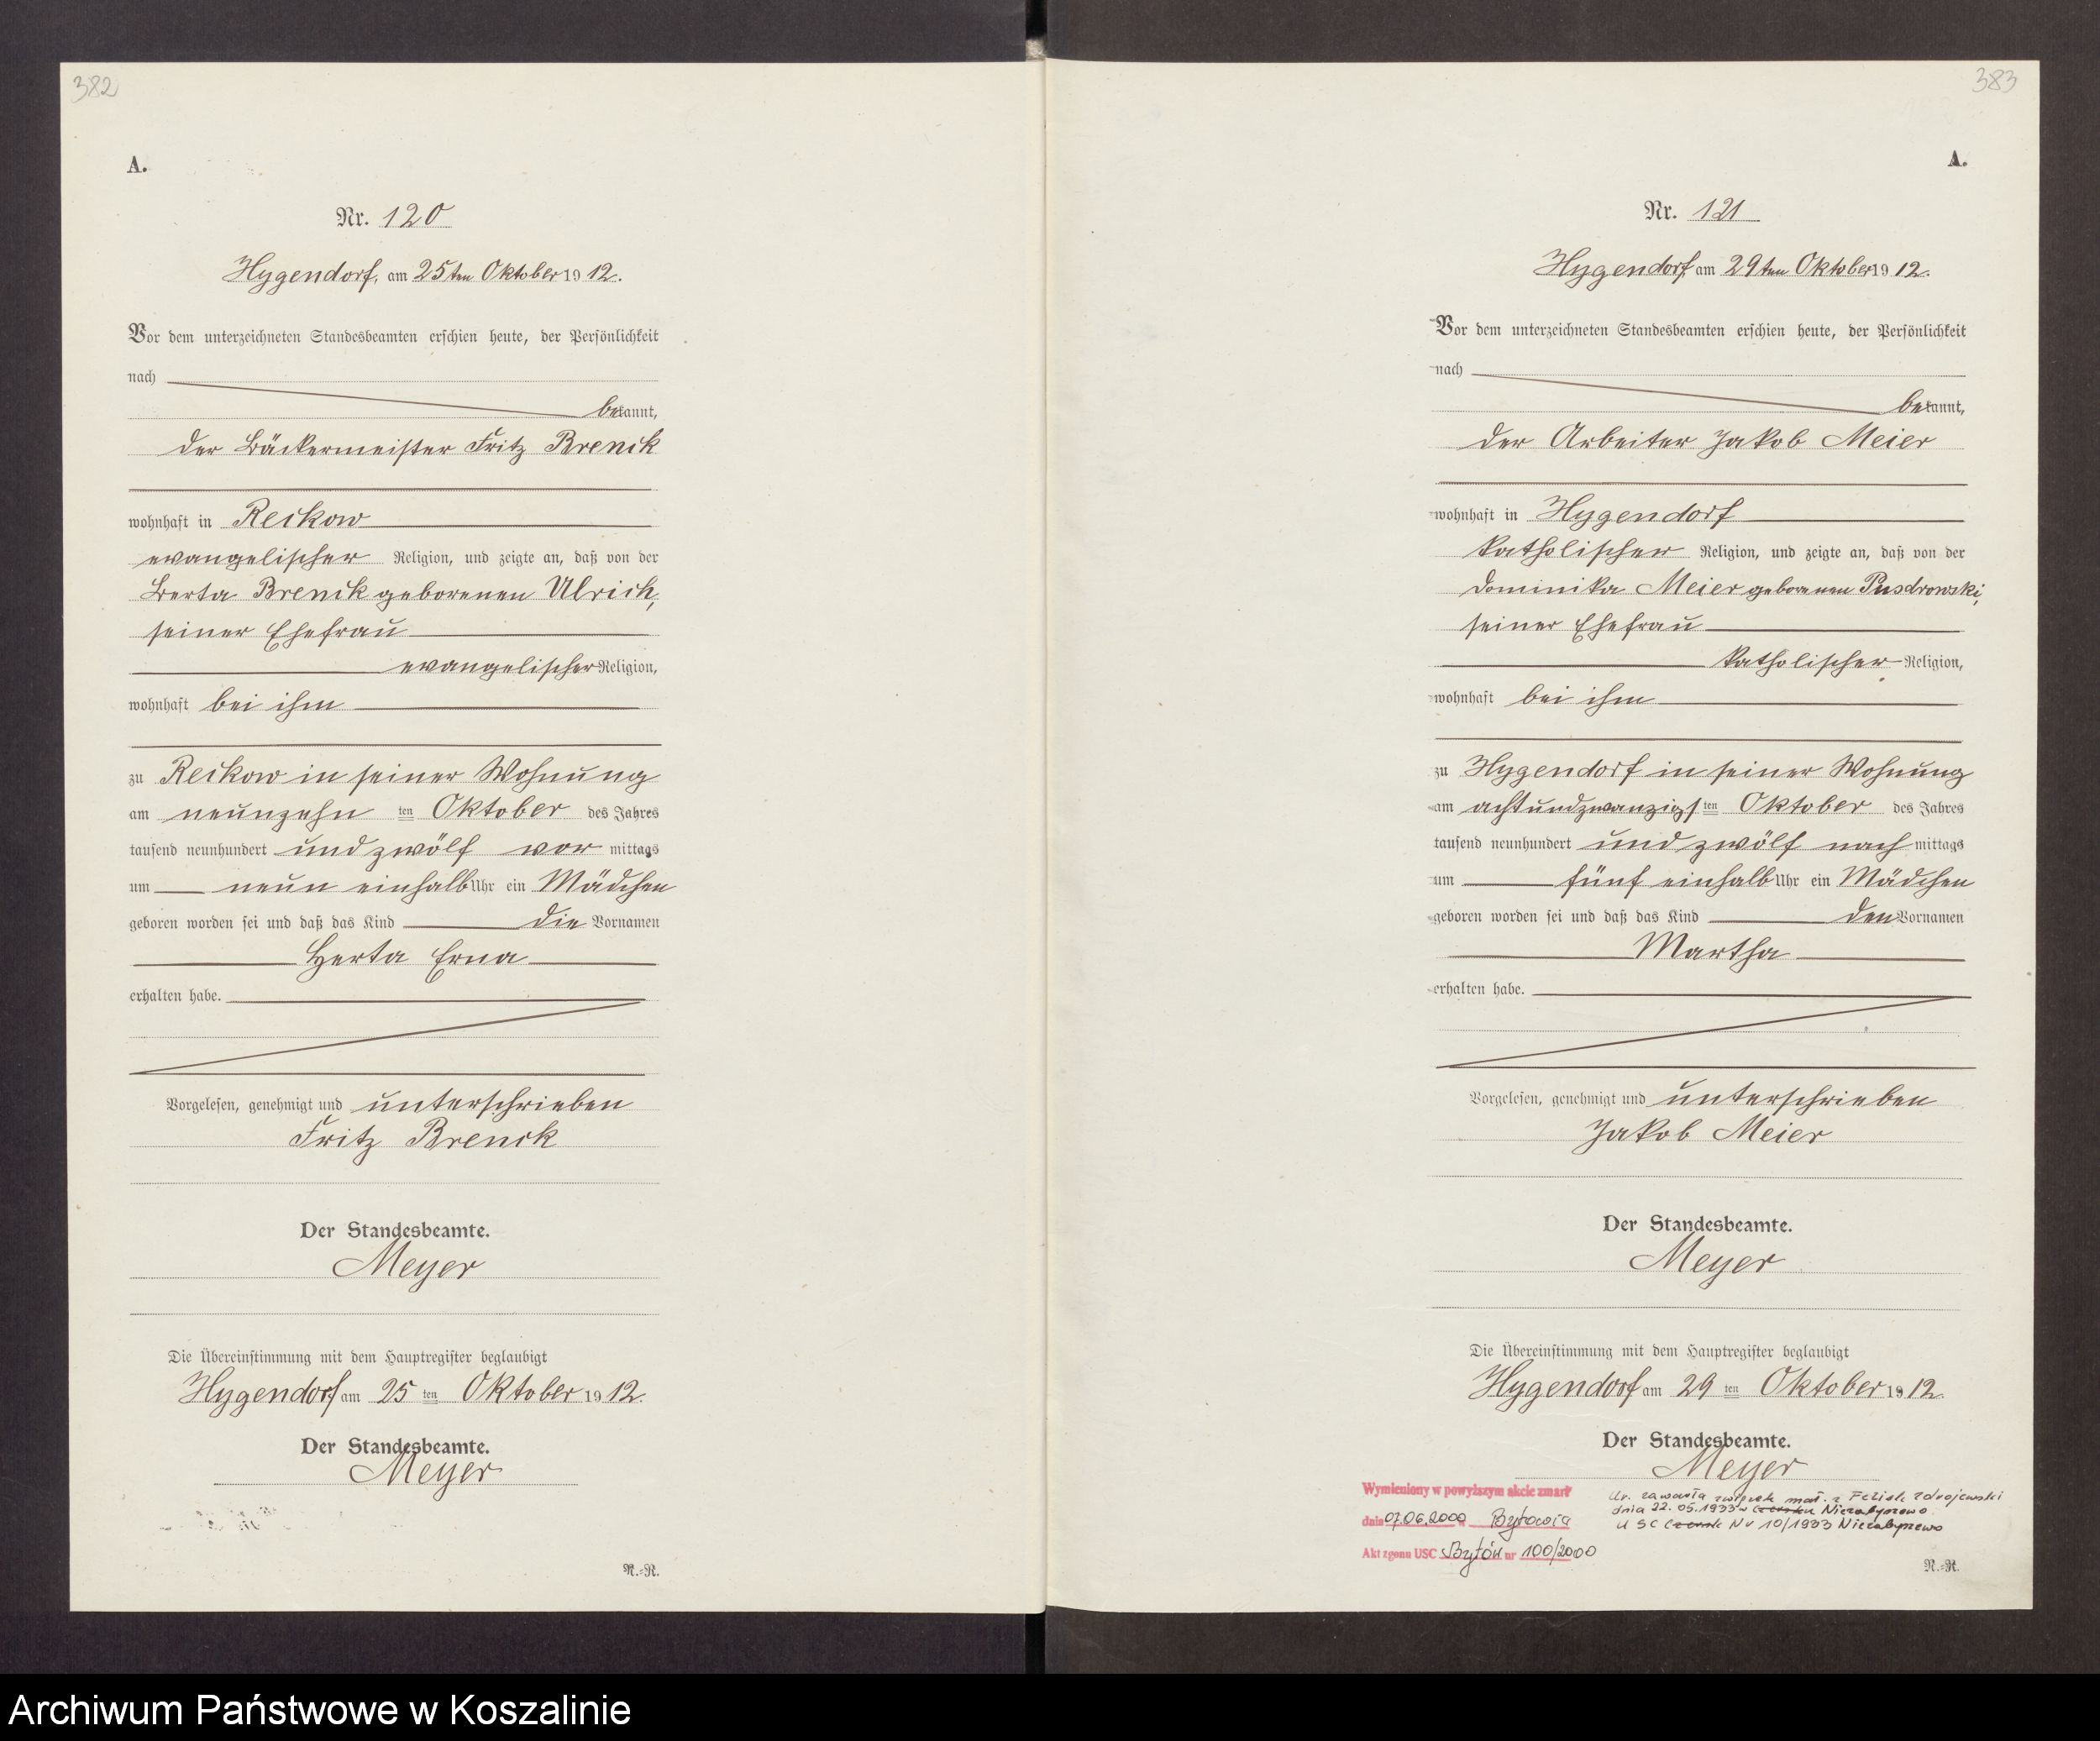 382
A.
Nr. 120
Hygendorf, am 25ten Oktober 1912.
Vor dem unterzeichneten Standesbeamten erschien heute, der Persönlichkeit
nach
bekannt,
der Bäckermeister Fritz Brenck
wohnhaft in Reckow
evangelischer Religion, und zeigte an, daß von der
Berta Brenck geborenen Ulrich,
seiner Ehefrau
evangelischer Religion,
wohnhaft bei ihm
zu Reckow in seiner Wohnung
am neunzehn ten Oktober des Jahres
tausend neunhundert und zwölf vor mittags
um neun einhalb Uhr ein Mädchen
geboren worden sei und daß das Kind die Vornamen
Herta Erna
erhalten habe.
Vorgelesen, genehmigt und unterschrieben
Fritz Brenck
Der Standesbeamte.
Meyer
Die Übereinstimmung mit dem Hauptregister beglaubigt
Hygendorf am 25 ten Oktober 1912.
Der Standesbeamte.
Meyer
N.=N.
383
A.
Nr. 121
Hygendorf, am 29ten Oktober 1912.
Vor dem unterzeichneten Standesbeamten erschien heute, der Persönlichkeit
nach
bekannt,
der Arbeiter Jakob Meier
wohnhaft in Hygendorf
katholischer Religion, und zeigte an, daß von der
Dominika Meier geborenen Pusdrowski,
seiner Ehefrau
katholischer Religion,
wohnhaft bei ihm
zu Hygendorf in seiner Wohnung
am achtundzwanzigsten Oktober des Jahres
tausend neunhundert und zwölf nach mittags
um fünf einhalb Uhr ein Mädchen
geboren worden sei und daß das Kind den Vornamen
Martha
erhalten habe.
Vorgelesen, genehmigt und unterschrieben
Jakob Meier
Der Standesbeamte.
Meyer
Die Übereinstimmung mit dem Hauptregister beglaubigt
Hygendorf am 29 ten Oktober 1912.
Der Standesbeamte.
Meyer
Wymieniony w powyższym akcie zmarł
dnia 07.06.2000 w Bytowie
Akt zgonu USC Bytów nr 100/2000
Ur. zawarła związek mał. z Feliks Zdrojewski
dnia 22.05.1933 w Niezabyszewo
USC Nr 10/1933 Niezabyszewo
N.=N.
Archiwum Państwowe w Koszalinie